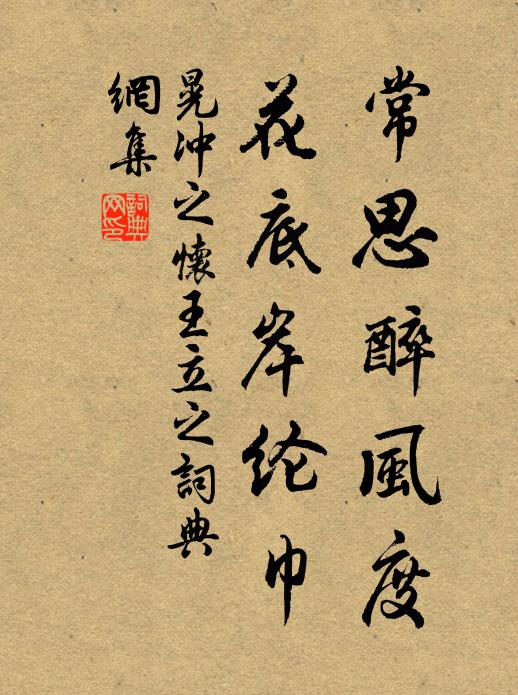 常思醉風度
花底岸纶巾
晁冲之懷王立之詞典
網集
詞典
网印